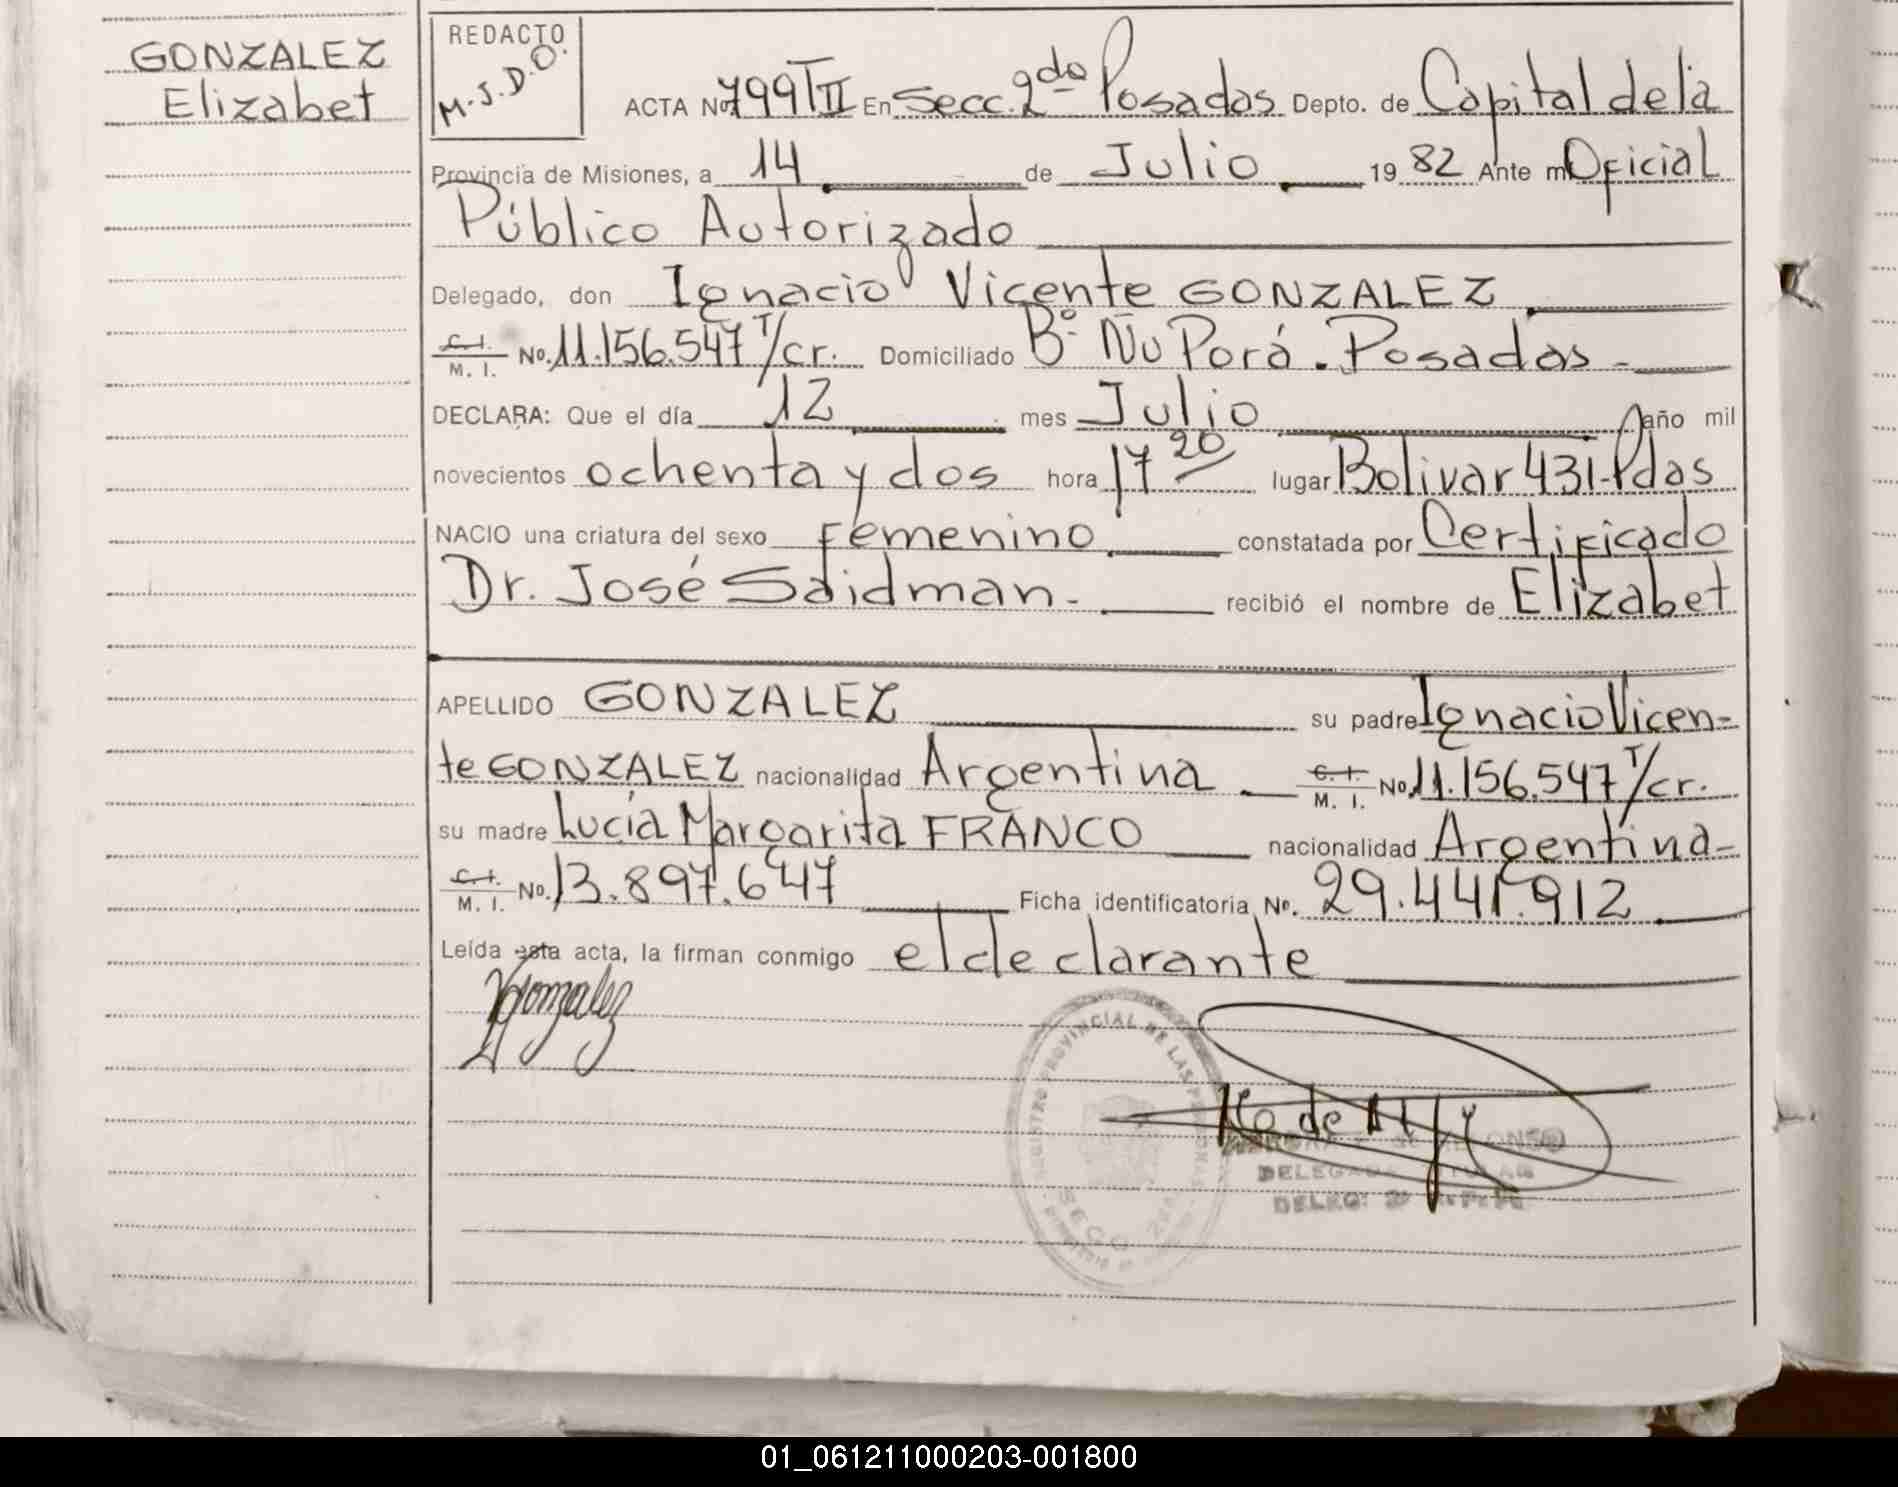 GONZALEZ
Elizabet
REDACTO
M.J.D.O.
ACTA No. 799 TII En Secc. 2do Posadas Depto. de Capital de la
Provincia de Misiones, a 14 de Julio 19 82 Ante mi Oficial
Público Autorizado
Delegado, don Ignacio Vicente GONZALEZ
C.I. M. I. No. 11.156.547 T/cr. Domiciliado Bº Ñu Porá. Posadas -
DECLARA: Que el día 12 mes Julio año mil
novecientos ochenta y dos hora 17 20 lugar Bolivar 431-Pdas
NACIO una criatura del sexo Femenino constatada por Certificado
Dr. José Saidman - recibió el nombre de Elizabet
APELLIDO GONZALEZ su padre Ignacio Vicen-
te GONZALEZ nacionalidad Argentina C.I. M. I. No. 11.156.547 T/cr.
su madre Lucía Margarita FRANCO nacionalidad Argentina-
C.I. M. I. No. 13.897.647 Ficha identificatoria No. 29.441.912
Leída esta acta, la firman conmigo el declarante
Gonzalez
REGISTRO PROVINCIAL DE LAS PERSONAS
SECC. 2da
DELEGADA TITULAR
01_061211000203-001800